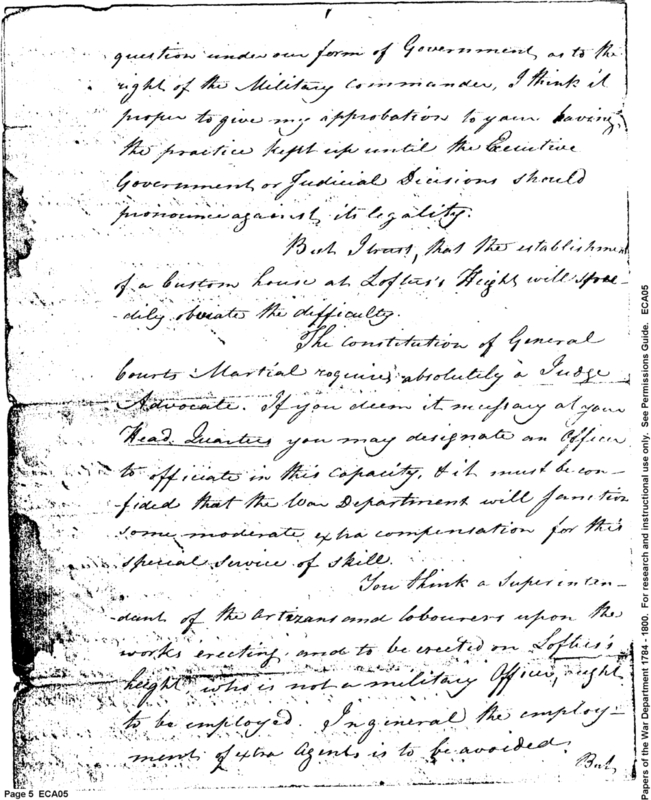 question under our form of Government, as to the
right of the Military Commander, I think it
proper to give my approbation to your having
the practice kept up until the Executive
Government, or Judicial Decisions should
pronounce against its legality.
But I trust, that the establishment
of a Custom house at Loftus's Height will spee-
-dily obviate the difficulty.
The constitution of General
Courts Martial requires absolutely a Judge
Advocate. If you deem it necessary at your
Head Quarters you may designate an Officer
to officiate in this capacity, & it must be con-
fided that the War Department will sanction
some moderate extra compensation for this
special service of skill.
You think a Superinten-
dant of the artizans and labourers upon the
works erecting and to be erected on Loftus's
height who is not a military Officer, ought
to be employed. In general the employ-
ment of extra Agents is to be avoided.
But
Page 5 ECA05
Papers of the War Department 1784 - 1800. For research and instructional use only. See Permissions Guide. ECA05